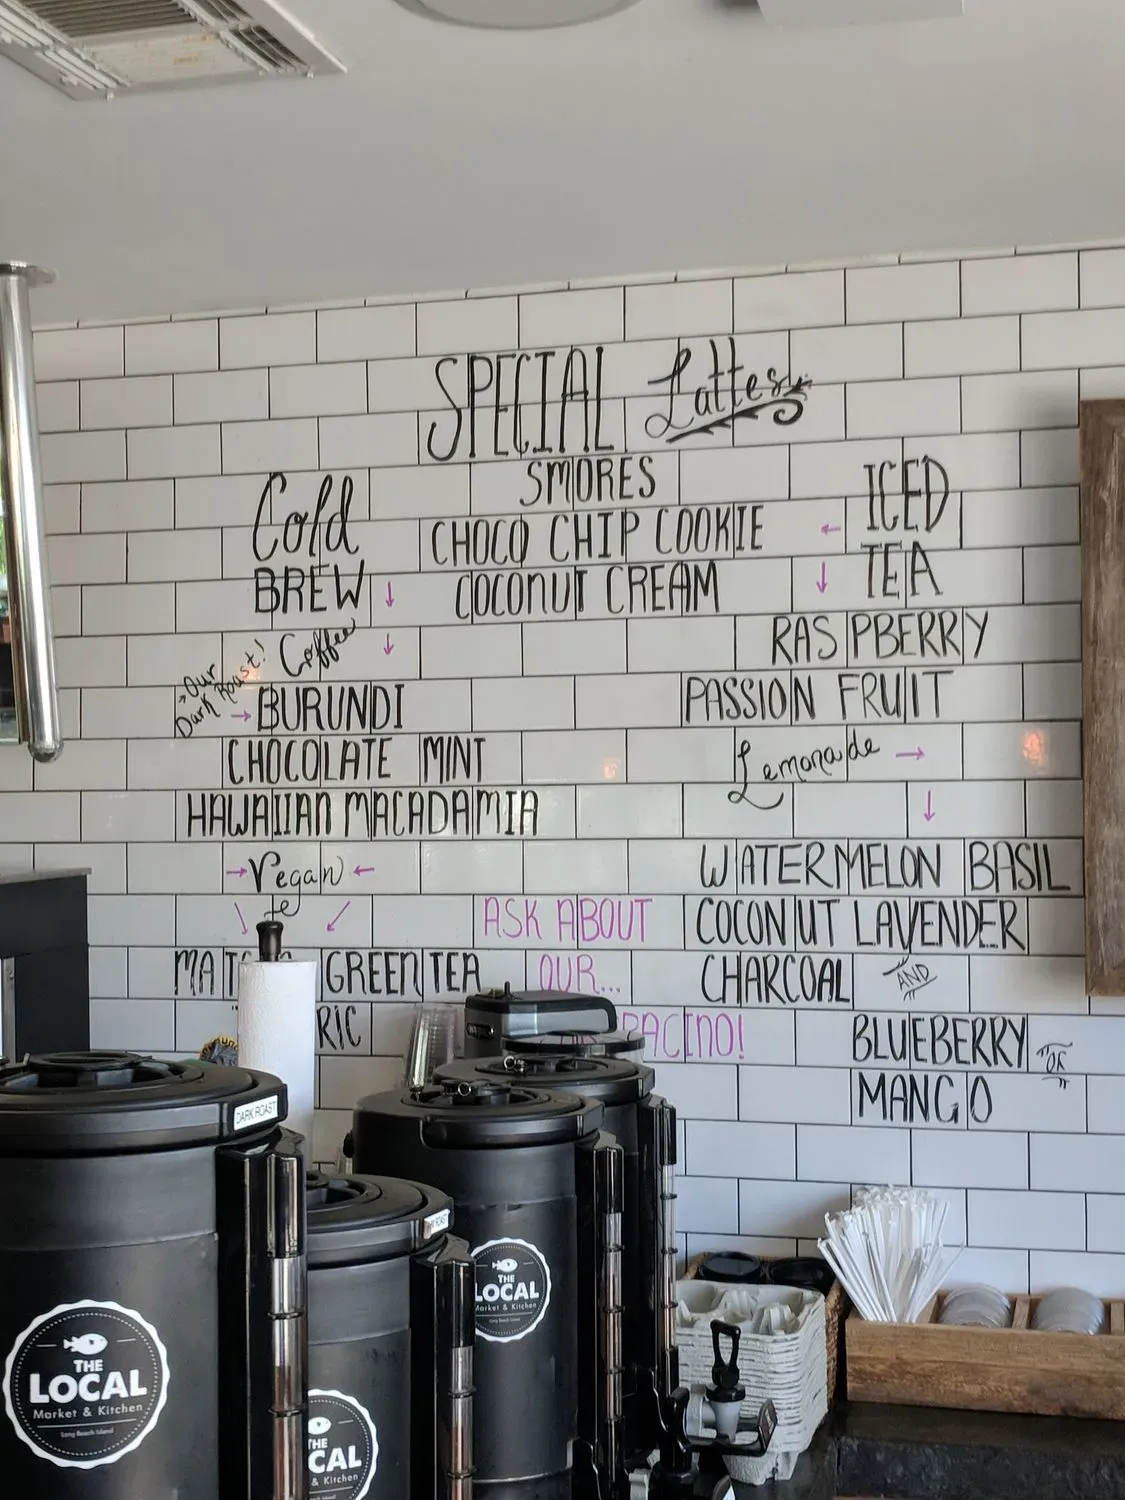 SPECIAL Lattes
SMORES
CHOCO CHIP COOKIE
COCONUT CREAM
Cold
BREW
Coffee
Our
Dark Roast!
BURUNDI
CHOCOLATE MINT
HAWAIIAN MACADAMIA
Vegan
GREEN TEA
ICED
TEA
RASPBERRY
PASSION FRUIT
Lemonade
WATERMELON BASIL
COCONUT LAVENDER
CHARCOAL AND
BLUEBERRY OR
MANGO
ASK ABOUT
OUR...
DARK ROAST
THE
LOCAL
Market & Kitchen
Long Beach Island
THE
LOCAL
Market & Kitchen
Long Beach Island
& Kitchen